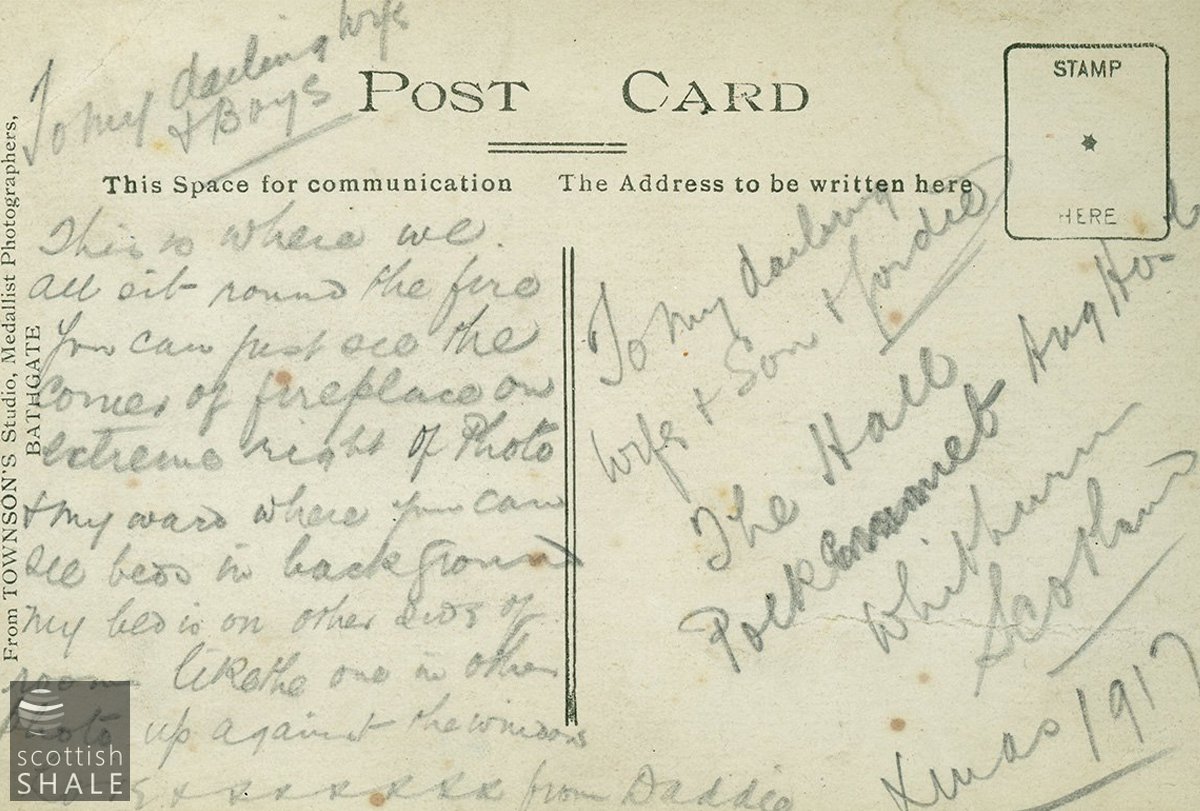 To my darling wife
& Boys
POST CARD
STAMP
HERE
This Space for communication
The Address to be written here
From TOWNSON'S Studio, Medallist Photographers,
BATHGATE
This is where we
all sit round the fire
You can just see the
corner of fireplace on
extreme right of Photo
& my ward where you can
see beds in background
my bed is on other side of
room like the one in other
Photo up against the windows
x x x x x x x from Daddie
To my darling
wife & Son & Jordie
The Hall
Polkemmet Aux Ho-
Whitburn
Scotland
Xmas 1917
scottish
SHALE